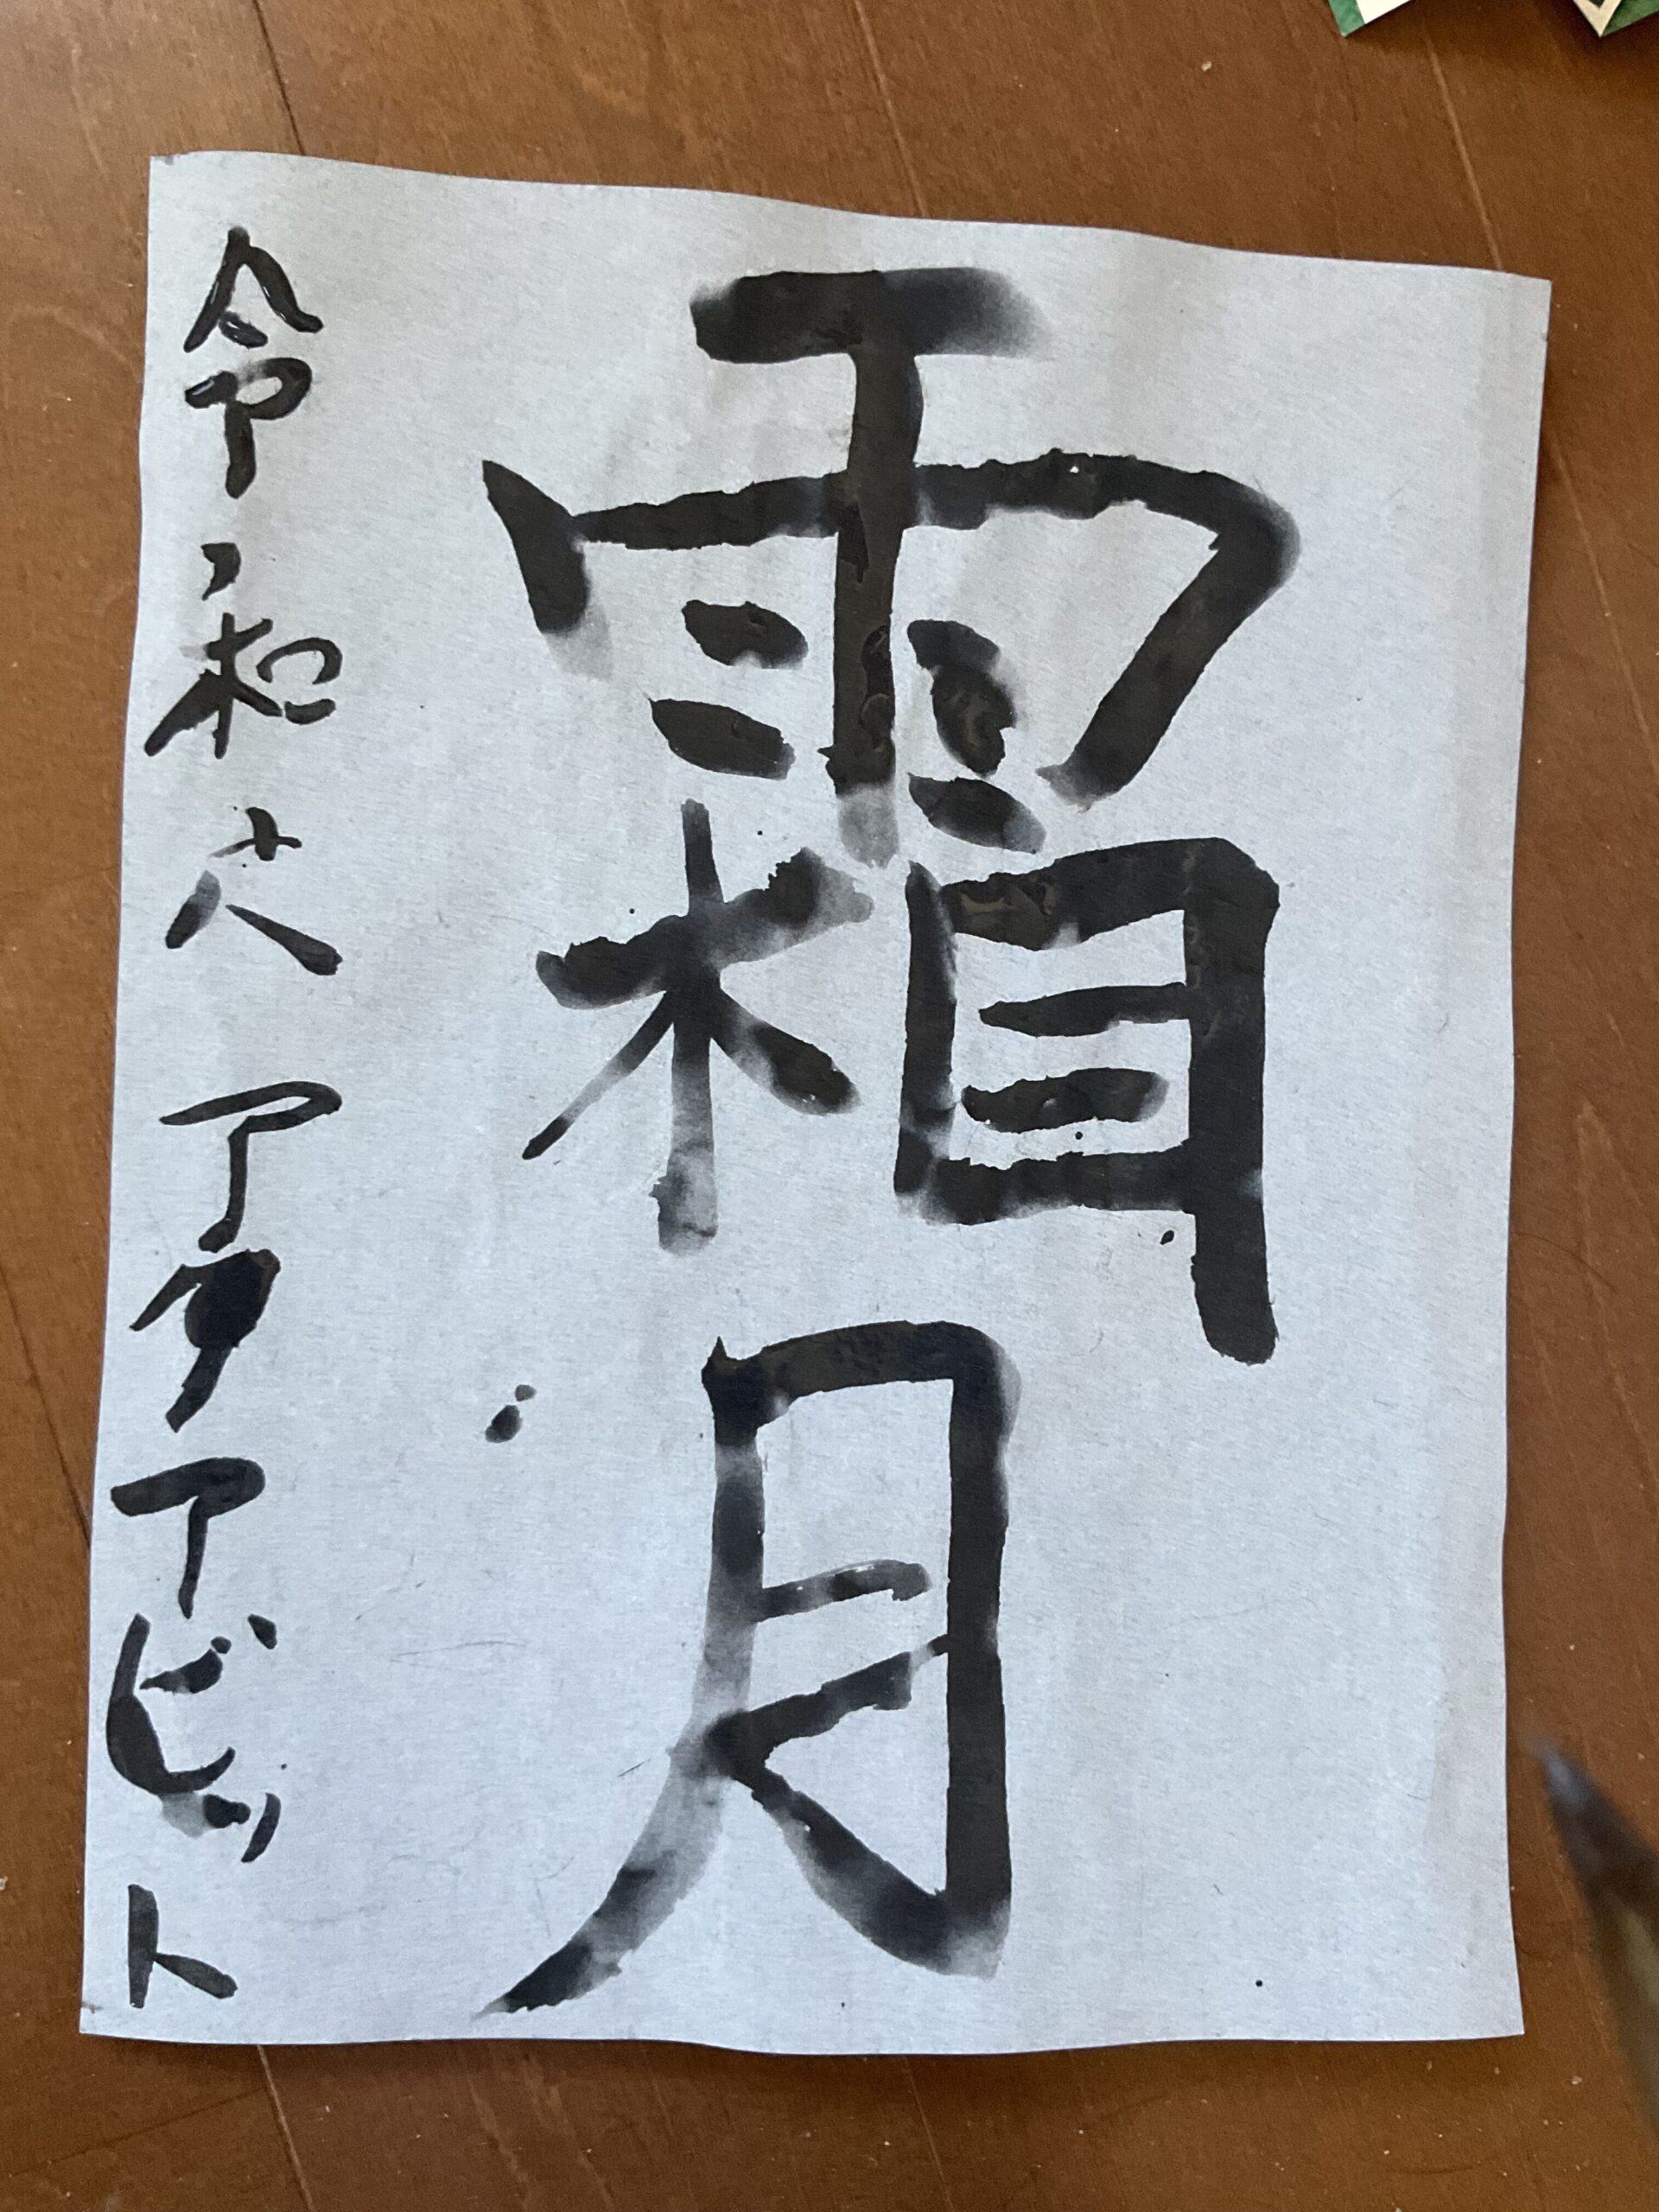 霜月
令和六 アタアビット